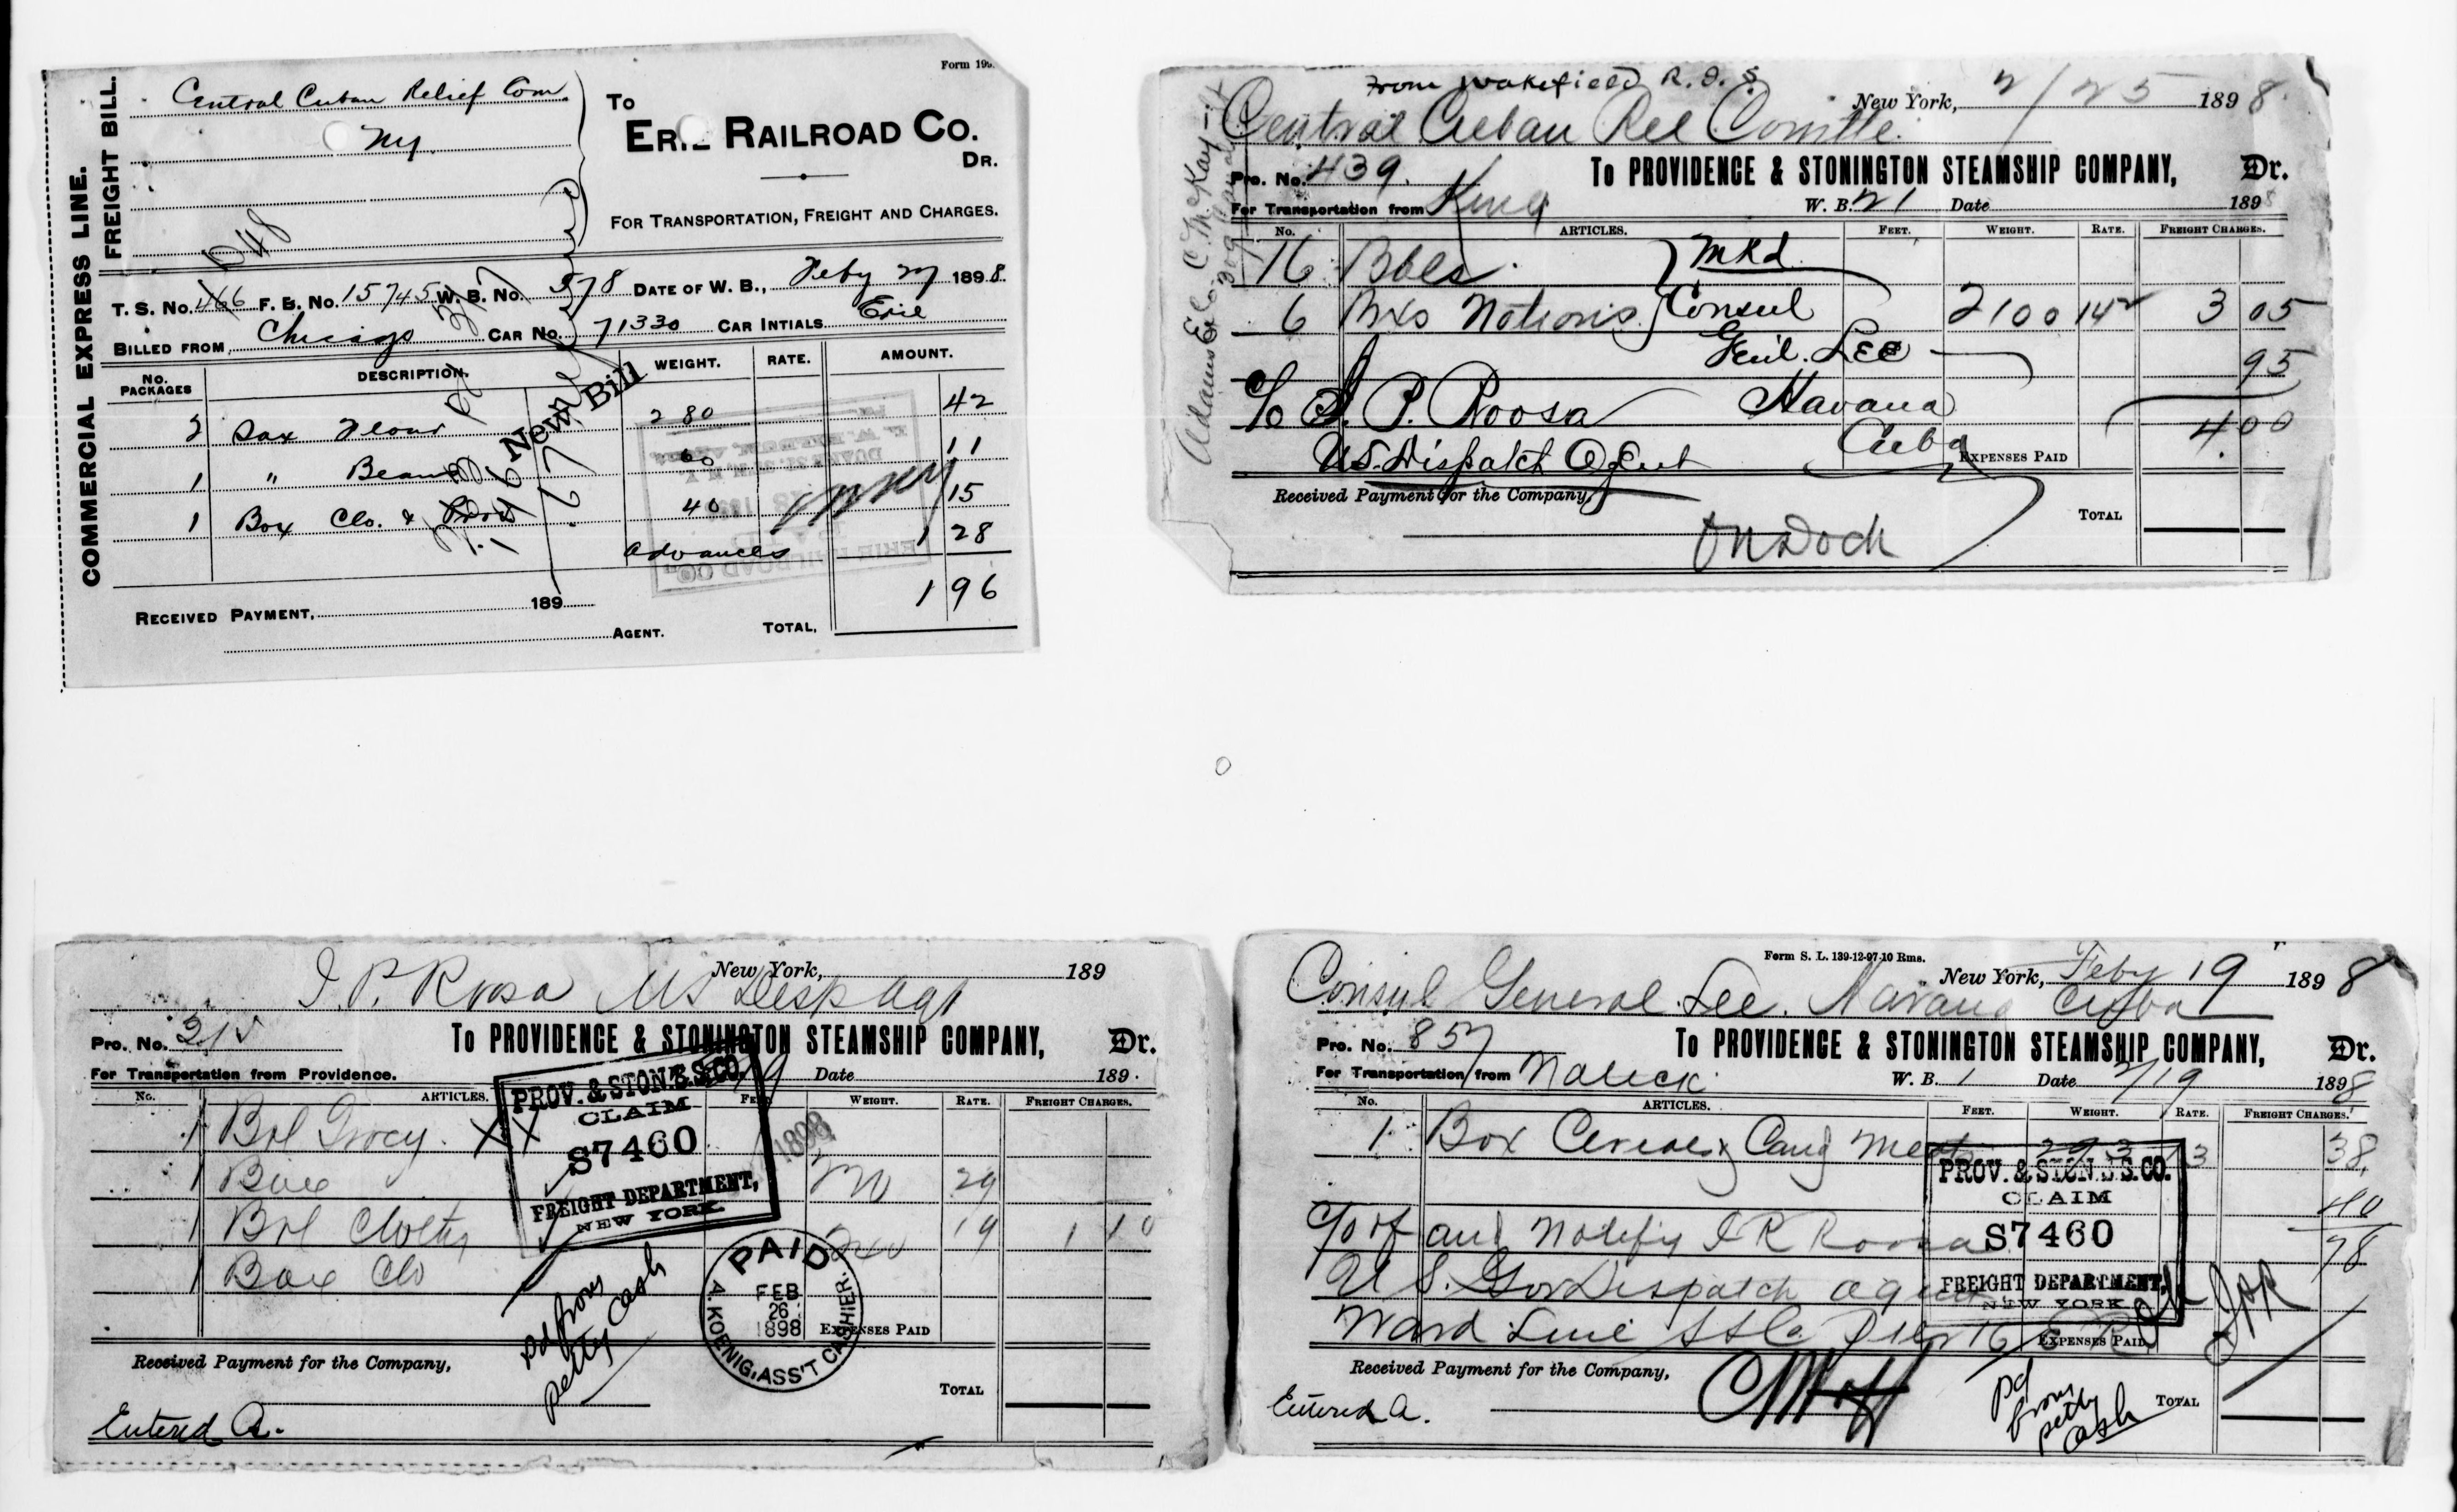 COMMERCIAL EXPRESS LINE.
FREIGHT BILL.
Form 199.
Central Cuban Relief Com.
NY.
To
ERIE RAILROAD CO.
DR.
FOR TRANSPORTATION, FREIGHT AND CHARGES.
T. S. No. 466 F. B. No. 15745 W. B. No. 578 DATE OF W. B., Feby 27 1898.
BILLED FROM, Chicago CAR No. 71330 CAR INTIALS Erie
NO. PACKAGES DESCRIPTION. WEIGHT. RATE. AMOUNT.
2 Sax Flour 280 42
1 " Beans 60 11
1 Box Clo. & 40 15
Advances 1 28
1 96
New Bill
RECEIVED PAYMENT, 189
AGENT. TOTAL,
From Wakefield R. I. S.
New York, 2/25 1898.
Central Cuban Rel Comitte.
Pro. No. 439. To PROVIDENCE & STONINGTON STEAMSHIP COMPANY, Dr.
For Transportation from King W. B. 21 Date 1898
No. ARTICLES. FEET. WEIGHT. RATE. FREIGHT CHARGES.
16 Bbls. Mkd
6 Bxs Notions Consul 2100 14½ 3 05
Genl. Lee 95
c/o I. P. Roosa Havana 4.00
U.S. Dispatch Agent Cuba
EXPENSES PAID
Received Payment for the Company,
TOTAL
Adams E. C.
New York, 189
I. P. Roosa US Desp Agt
Pro. No. To PROVIDENCE & STONINGTON STEAMSHIP COMPANY, Dr.
For Transportation from Providence. Date 189
No. ARTICLES. FEET. WEIGHT. RATE. FREIGHT CHARGES.
1 Bbl Grocy.
1 Box 29
1 Bbl Clothg 19 1 10
1 Box Clo
PROV. & STON. S.S. CO.
CLAIM
S7460
FREIGHT DEPARTMENT,
NEW YORK
1898
PAID
FEB
26
1898
A. KOENIG, ASS'T CASHIER.
EXPENSES PAID
Received Payment for the Company,
pd from
petty cash
TOTAL
Entered A.
Form S. L. 139-12-97-10 Rms.
New York, Feby 19 1898
Consul General Lee. Havana Cuba
Pro. No. 857 To PROVIDENCE & STONINGTON STEAMSHIP COMPANY, Dr.
For Transportation from Natick W. B. 1 Date 2/19 1898
No. ARTICLES. FEET. WEIGHT. RATE. FREIGHT CHARGES.
1 Box Cereals & Cand Meats 293 13 38
40
c/o of and Notify I P Roosa 78
U S. Gov Despatch agent
Ward Line SS Co. Pier 16 E R
PROV. & STON. S.S. CO.
CLAIM
S7460
FREIGHT DEPARTMENT,
NEW YORK
EXPENSES PAID
Received Payment for the Company,
pd
from
petty
cash
TOTAL
Entered A.